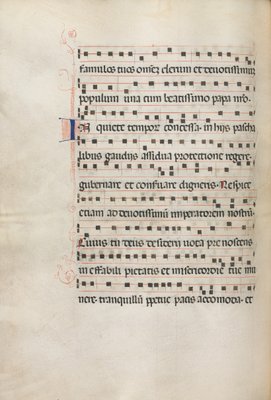 famulos tuos omnem clerum et deuotissimum
populum una cum beatissimo papa nro
quiete temporum concessa in hijs pascha
libus gaudijs assidua protectione regere
gubernare et conseruare digneris Respice
etiam ad deuotissimum imperatorem nostrum
Cuius tu deus desiderii uota prenoscens
ineffabili pietatis et misericordie tue mu
nere tranquillum perpetue pacis accomoda et